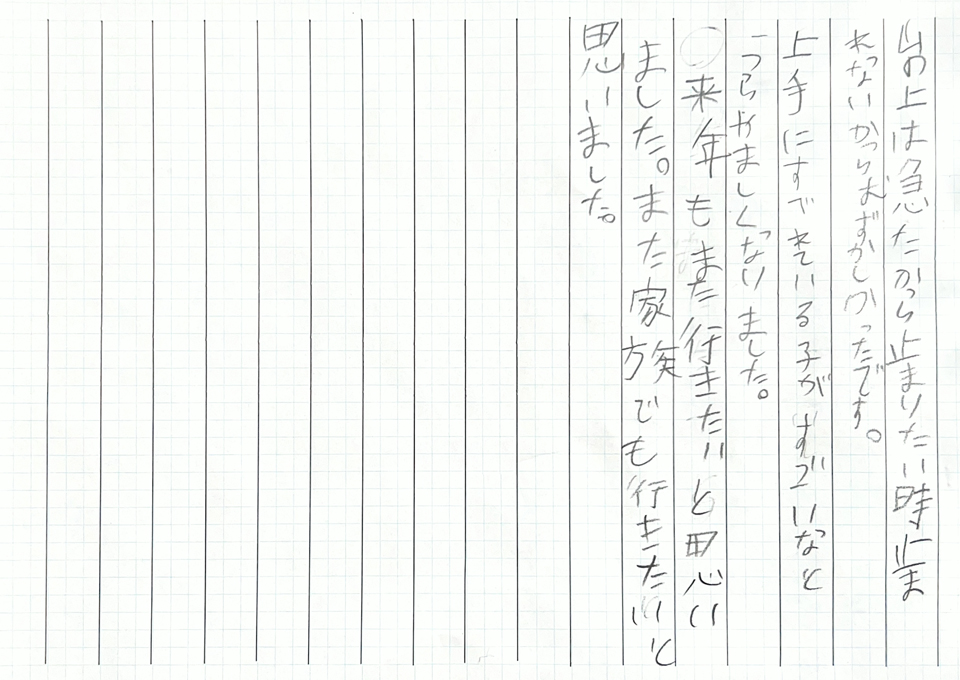 山の上は急だから止まりたい時止ま
れないからむずかしかったです。
上手にすでれている子がすごいなと
うらやましくなりました。
○来年もまた行きたいと思い
ました。また家族でも行きたいと
思いました。